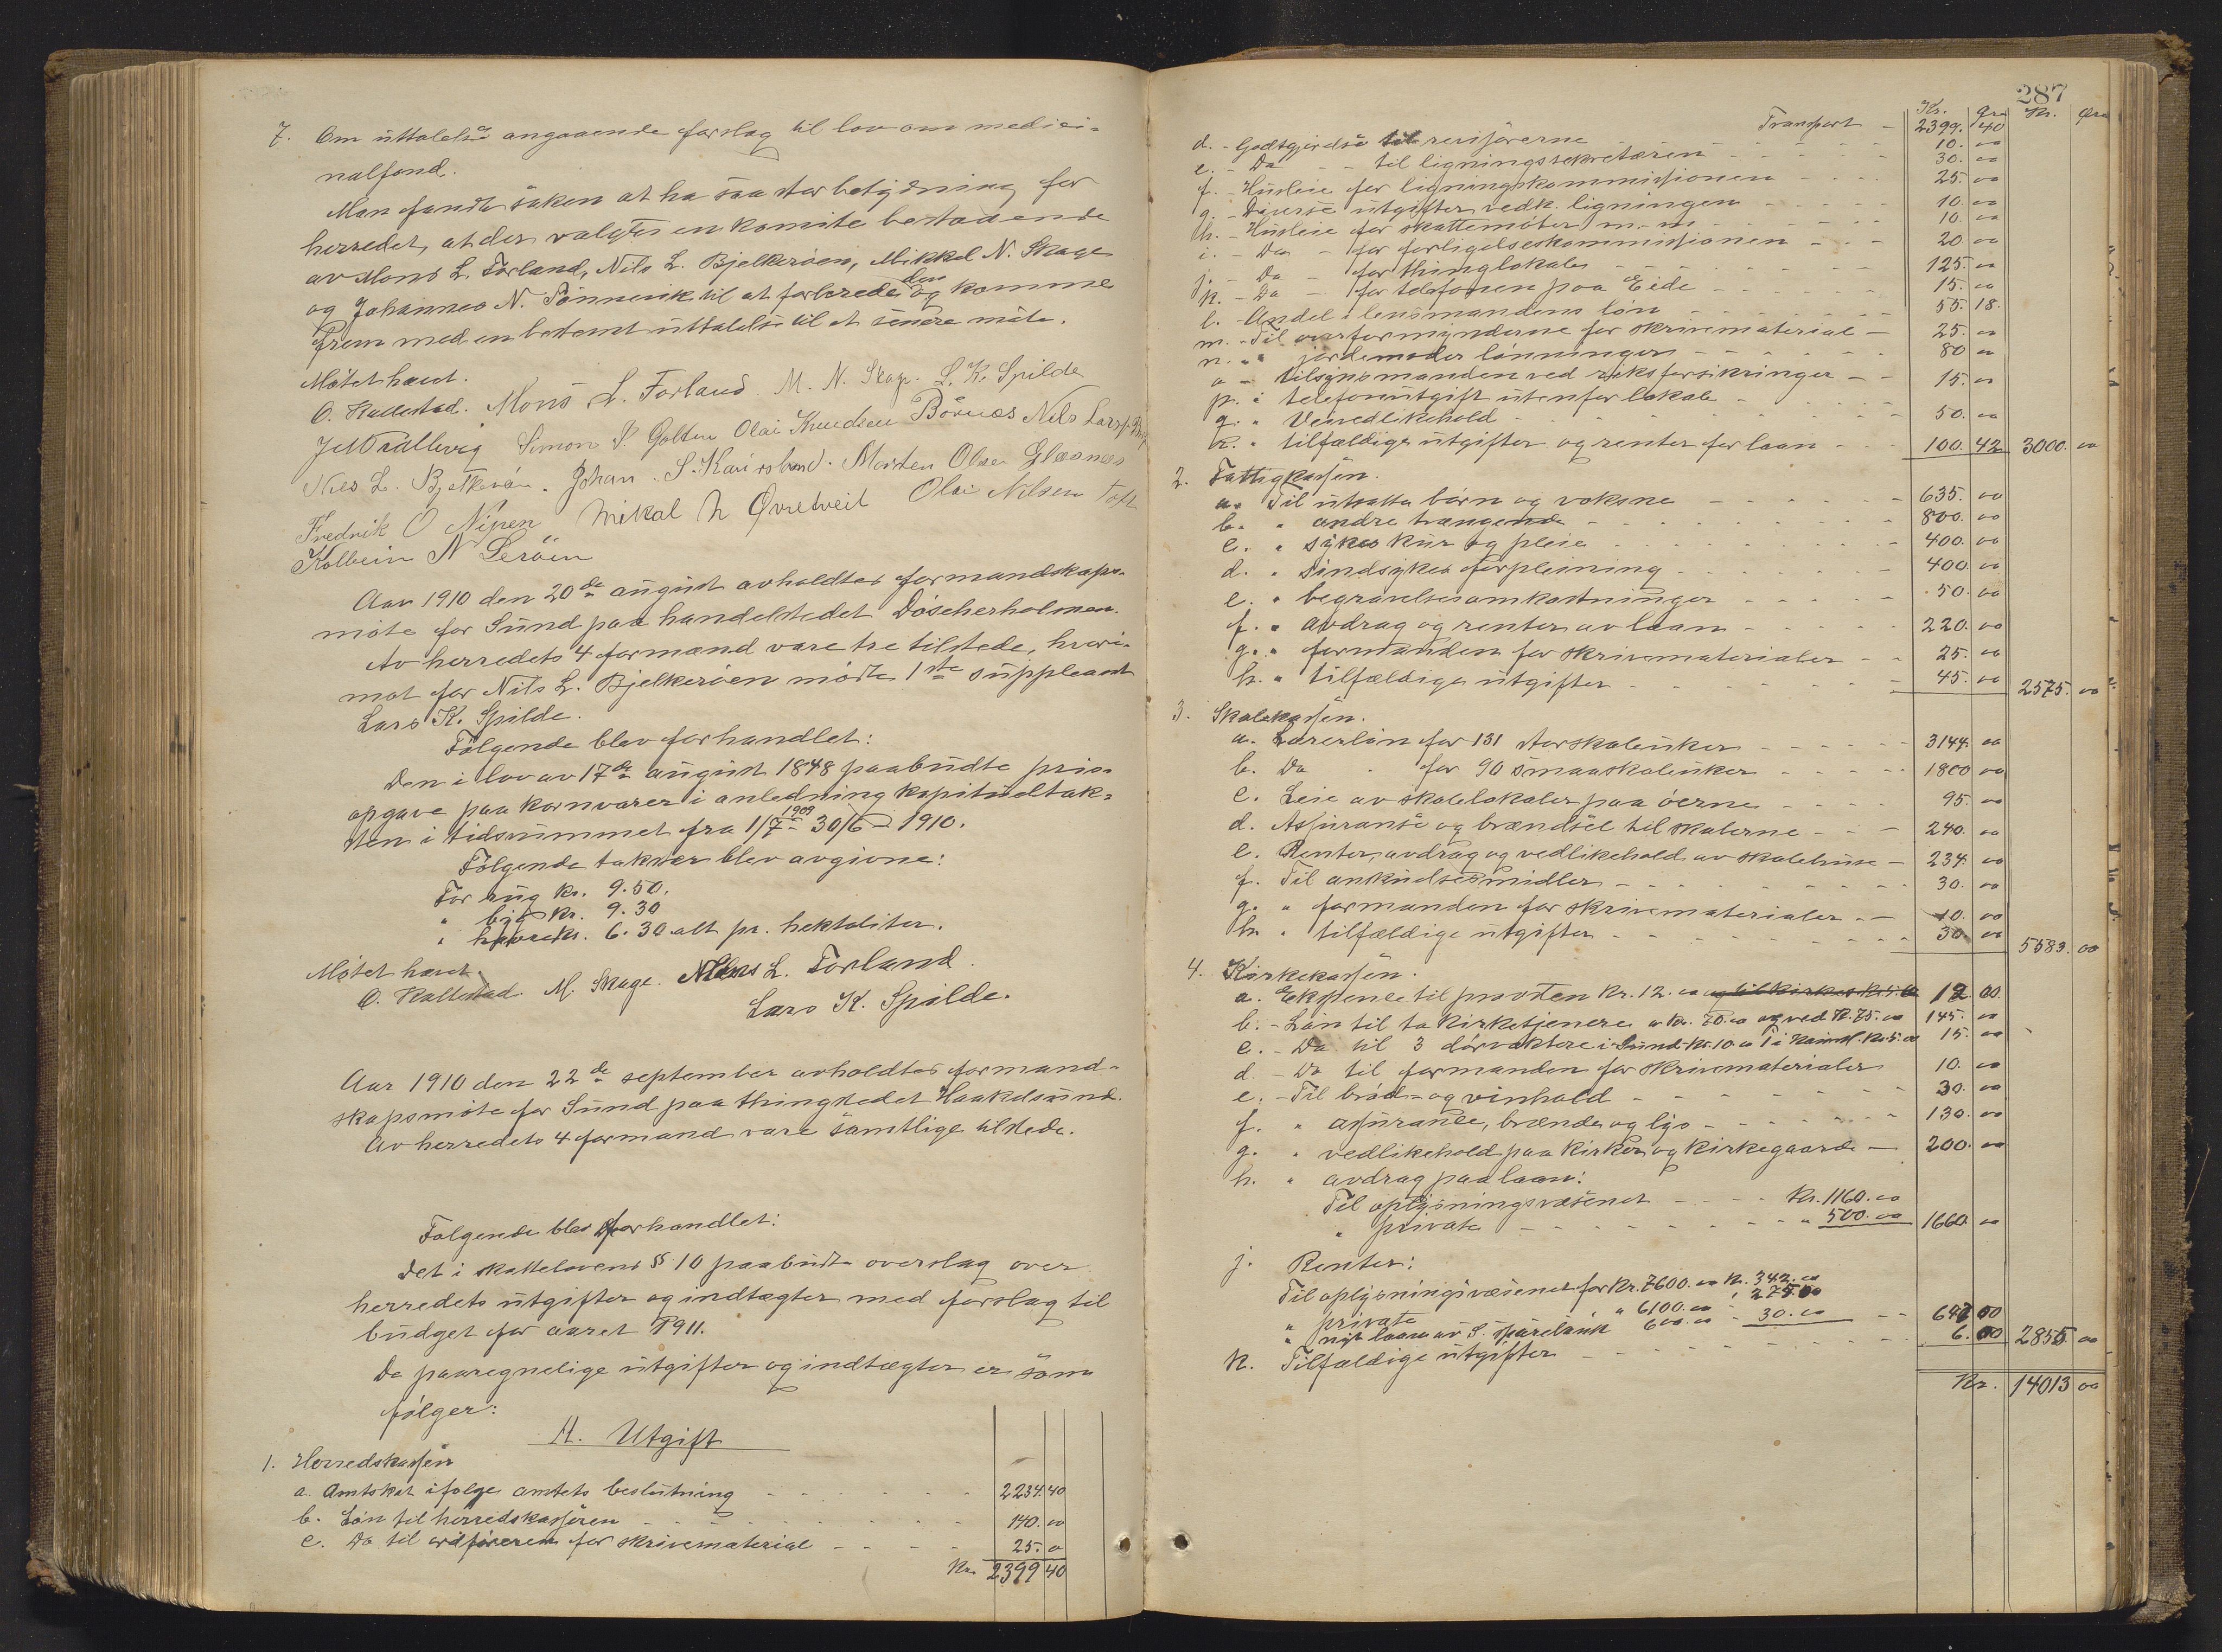 7. Om uttalelse angaaende forslag til lov om medici-
nalfond.
Man fandt saken at ha saa stor betydning for
herredet, at der valgtes en komite bestaaende
av Mons L. Forland, Nils L. Bjelkerøen, Mikkel N. Skage
og Johannes N. Tønnevik til at forberede den og komme
frem med en bestemt uttalelse til et senere møte.
Møtet hævt.
O. Kallestad. Mons L. Forland M. N. Skage. L. K. Spilde
Simon P. Golten Olai Knudsen Børnes Nils Larss.
Nils L. Bjelkerøen. Johan S. Morten Olsen Glesnes
Fredrik O Nipen Mikal N Øvretveit Olai Nilsen Toft
Kolbein N Lerøen
Aar 1910 den 20de august avholdtes formandskaps-
møte for Sund paa handelstedet Døscherholmen.
Av herredets 4 formænd vare tre tilstede, hvori-
mot for Nils L. Bjelkerøen møtte 1ste suppleant
Lars K. Spilde.
Følgende blev forhandlet:
Den i lov av 17de august 1848 paabudte pris-
opgave paa kornvarer i anledning kapitueltak-
sten i tidsrummet fra 1/7 1909 - 30/6 - 1910.
Følgende takster blev avgivne:
For rug kr. 9.50.
" byg kr. 9.30
" havre kr. 6.30 alt pr. hektoliter.
Møtet hævt.
O. Kallestad. M. Skage. Mons L. Forland.
Lars K. Spilde.
Aar 1910 den 22de september avholdtes formand-
skapsmøte for Sund paa thingstedet Haakelsund.
Av herredets 4 formænd vare samtlige tilstede.
Følgende blev forhandlet:
Det i skattelovens § 10 paabudte overslag over
herredets utgifter og indtægter med forslag til
budget for aaret 1911.
De paaregnelige utgifter og indtægter er som
følger:
A. Utgift
1. Herredskassen
a. Amtskat ifølge amtets beslutning - - - 2234.40
b. Løn til herredskasseren - - - 140.00
c. Do til ordføreren for skrivematerial - - - 25.00
Kr. 2399 40
287
Kr. Øre Kr. Øre
Transport - 2399. 40
d. - Godtgjørelse til revisorerne 10. 00
e. - Do - - til ligningssekretæren - - - 30. 00
f. - Husleie for ligningskommissionen - - - 25. 00
g. - Diverse utgifter vedk. ligningen - - - 10. 00
h. - Husleie for skattemøter m. m. - - - 10. 00
i. - Do - for forligelseskommissionen - - - 20 00
j. - Do - for thinglokale - - - 125. 00
k. - Do - for telefonen paa Eide - - - 15. 00
l. - Andel i lensmandens løn - - - 55. 18.
m. - Til overformynderne for skrivematerial - 25. 00
n. " " jordemoder lønninger - - - 80 00
o - tilsynsmanden ved riksforsikringer - - 15. 00
p. " telefonutgift utenfor lokale - - -
q. " Veivedlikehold - - - 50. 00
r. " tilfældige utgifter og renter for laan - - - 100. 42 3000. 00
2. Fattigkassen.
a. Til utsatte børn og voksne - - - 635. 00
b. " andre trængende - - - 800. 00
c. " sykes kur og pleie - - - 400. 00
d. " sindsykes forpleining - - - 400. 00
e. " begravelsesomkostninger - - - 50. 00
f. " avdrag og renter av laan - - - 220. 00
g. " formanden for skrivematerialer - - 25. 00
h. " tilfældige utgifter - - - 45. 00 2575. 00
3. Skolekassen.
a. Lærerløn for 131 storskoleuker - - - 3144. 00
b. Do - for 90 smaaskoleuker - - - 1800 00
c. Leie av skolelokaler paa øerne - - - 95. 00
d. Assuranse og brændsel til skolerne - - - 240. 00
e. Renter, avdrag og vedlikehold av skolehuse - 234. 00
f. Til undervisningsmidler - - - 30. 00
g. " formanden for skrivematerialer - - 10. 00
h. " tilfældige utgifter - - - 30. 00 5583. 00
4. Kirkekassen.
a. Ekspense til provsten kr. 12.00 12. 00.
b. - Løn til to kirketjenere a kr. 70.00 og ved kr. 75.00 145. 00
c. - Do til 3 dørvoktere i Sund kr. 10.00 15. 00
d. - Do til formanden for skrivematerialer 10. 00
e. - Til brød- og vinhold - - - 30. 00
f. " assuranse, brænde og lys - - - 130. 00
g. " vedlikehold paa kirker og kirkegaarde - 200. 00
h. " avdrag paa laan:
Til oplysningsvæsenet - - - Kr. 1160.00
" private - - - " 500.00 1660. 00
j. Renter:
Til oplysningsvæsenet for kr. 7600.00 kr. 342.00
" private " " 6100.00 " 275.00
" nyt laan av S. sparebank 600.00 - 30.00 - - 647 00
k. Tilfældige utgifter - - - 6. 00 2855 00
Kr. 14013 00